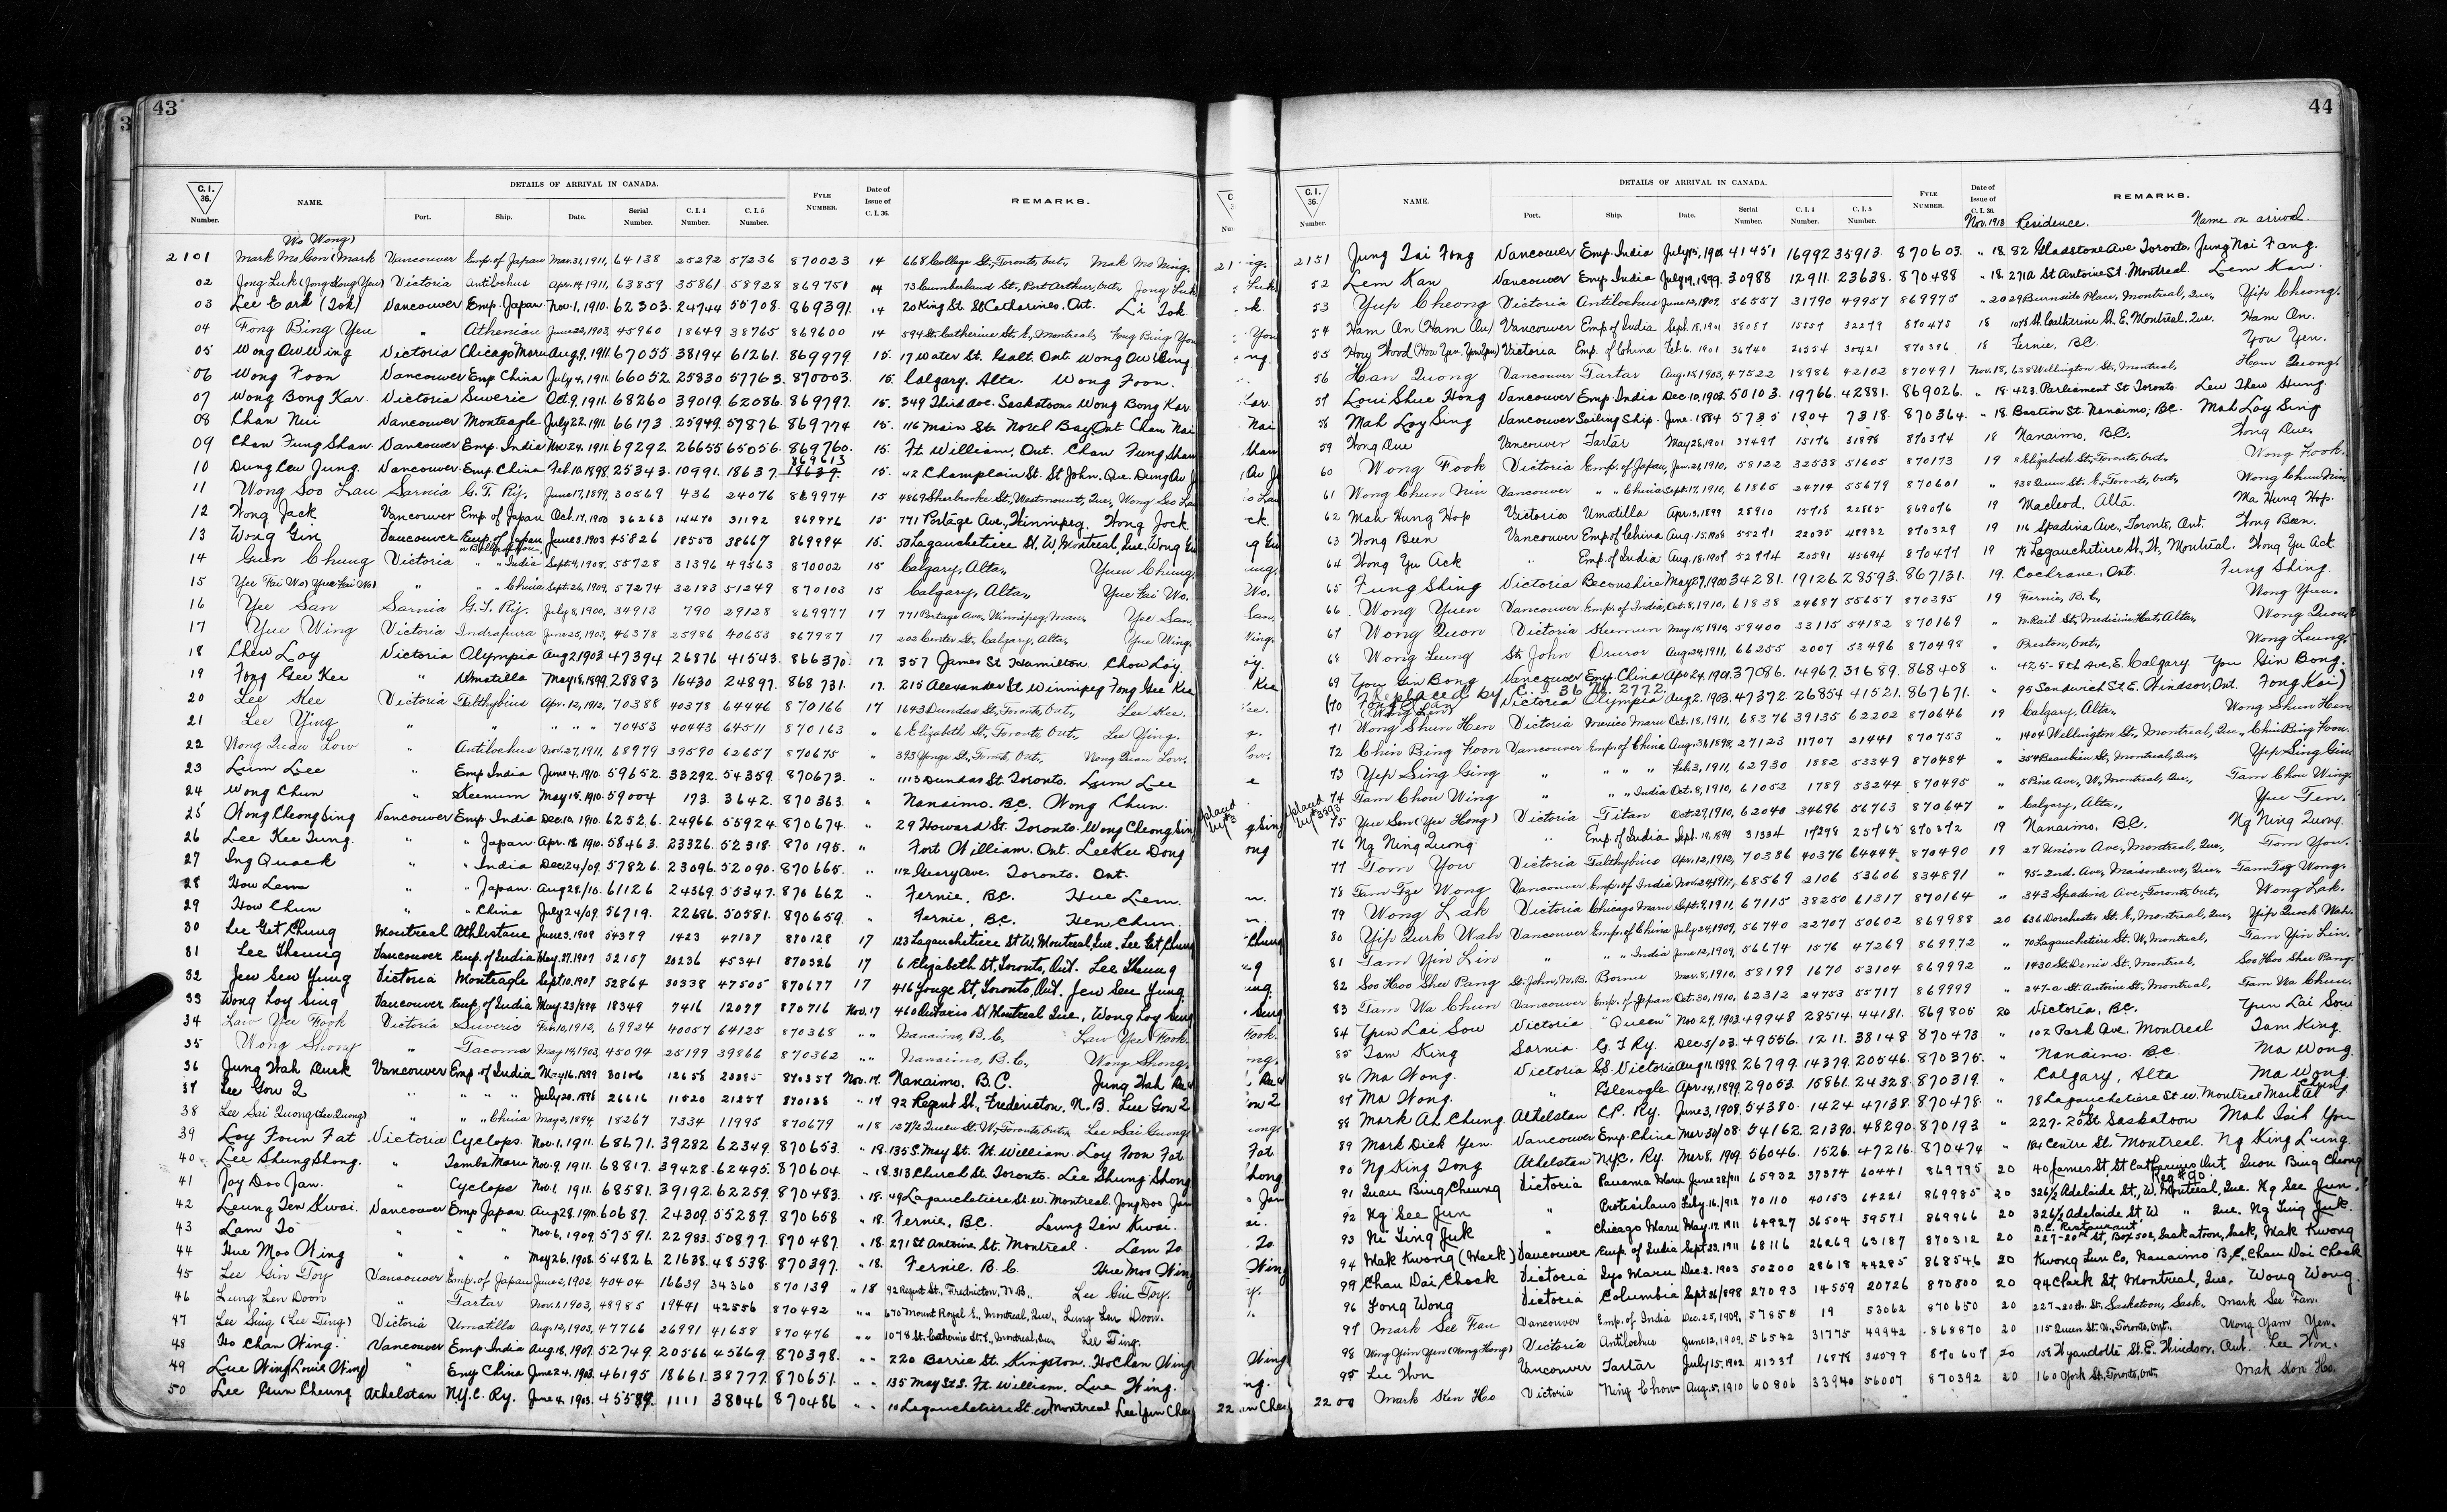 43
C.I. 36. Number. NAME. DETAILS OF ARRIVAL IN CANADA. Port. Ship. Date. Serial Number. C.I.4 Number. C.I.5 Number. FYLE NUMBER. Date of Issue of C.I.36. REMARKS.
Wo Wong)
2101 Mark Mo Gon (Mark Vancouver Emp. of Japan Mar. 31, 1911, 64138 25292 57236 870023 14 668 College St., Toronto, Ont., Mak Mo Ning.
02 Jong Luk (Jong Hong Yew) Victoria Antilochus Apr. 14, 1911, 63859 35861 58928 869751 14 73 Cumberland St., Port Arthur, Ont., Jong Luk
03 Lee Earl (Tok) Vancouver Emp. Japan. Nov. 1, 1910. 62303. 24744 55708. 869391. 14 20 King St. St Catharines. Ont. Li Tok
04 Fong Bing Yeu " Athenian June 22, 1903, 45960 18649 38765 869600 14 594 St. Catherine St. E., Montreal, Fong Bing You
05 Wong Ow Wing Victoria Chicago Maru Aug. 9, 1911. 67055 38194 61261. 869979. 15. 17 Water St. Galt. Ont. Wong Ow Wing.
06 Wong Foon Vancouver Emp China July 4, 1911. 66052. 25830 57763. 870003. 15. Calgary. Alta. Wong Foon.
07 Wong Bong Kar. Victoria Suveric Oct. 9, 1911. 68260 39019. 62086. 869797. 15. 349 Third Ave. Saskatoon Wong Bong Kar.
08 Chan Nui Vancouver Monteagle July 22, 1911. 66173. 25949. 57876. 869774 15. 116 Main St. North Bay Ont Chan Nai
09 Chan Fung Shan. Vancouver Emp. India Nov. 24, 1911. 69292. 26655 65056. 869760. 15. Ft. William, Ont. Chan Fung Shan
869613
10 Dung Cew Jung. Vancouver Emp. China Feb. 10, 1898. 25343. 10991. 18637. 18637. 15. 42 Champlain St. St John. Que. Dung Au J
11 Wong Soo Lau Sarnia G.T. Ry. June 17, 1899, 30569 436 24076 869974 15 4869 Sherbrooke St., Westmount, Que, Wong Soo Lau
12 Wong Jack Vancouver Emp. of Japan Oct. 17, 1900 36263 14470 31192 869976 15 771 Portage Ave., Winnipeg. Wong Jock
13 Wong Gin Vancouver Emp. of Japan June 3, 1903 45826 18550 38667 869994 15. 50 Lagauchetiere St, W, Montreal, Que. Wong Gin
14 Guen Chung Victoria " " India Sept. 9, 1908. 55728 31396 49563 870002 15 Calgary, Alta., Yuen Chung.
15 Yee Fai Wo (Yue Kai Wo) " " " China Sept. 26, 1909, 57274 32183 51249 870103 15 Calgary, Alta., Yue Kai Wo.
16 Yee San Sarnia G.T. Ry. July 8, 1900, 34913 790 29128 869977 17 771 Portage Ave., Winnipeg, Man., Yee San.
17 Yue Wing Victoria Indrapura June 25, 1903, 46378 25986 40653 867987 17 202 Center St., Calgary, Alta., Yue Wing.
18 Chew Loy Victoria Olympia Aug 2 1903 47394 26876 41543. 866370 17. 357 James St Hamilton. Chow Loy.
19 Fong Gee Kee " Umatilla May 18, 1899. 28883 16430 24897. 868731. 17. 215 Alexander St Winnipeg Fong Gee Kee
20 Lee Kee Victoria Talthybius Apr. 12, 1912, 70388 40378 64446 870166 17 1643 Dundas St., Toronto, Ont., Lee Kee.
21 Lee Ying " " " " 70453 40443 64511 870163 " 6 Elizabeth St., Toronto Ont., Lee Ying.
22 Wong Quan Low " Antilochus Nov. 27, 1911, 68979 39590 62657 870675 " 393 Yonge St., Toronto, Ont., Wong Quan Low.
23 Lum Lee " Emp India June 4, 1910. 59652. 33292. 54359. 870673. " 1113 Dundas St. Toronto. Lum Lee
24 Wong Chun " Keemun May 15, 1910. 59004 173. 3642. 870363. " Nanaimo. B.C. Wong Chun.
25 Wong Cheong Sing Vancouver Emp. India Dec. 10, 1910. 62526. 24966 55924. 870674. " 29 Howard St. Toronto. Wong Cheong Sing
26 Lee Kee Tung. " " Japan. Apr. 18 1910. 58463. 23326. 52318. 870195. " Fort William. Ont. Lee Kee Dong
27 Ing Quock " " India Dec. 24/09. 57826. 23096. 52090. 870665. " 112 Geary Ave. Toronto. Ont.
28 How Lem " " Japan. Aug 28/10. 61126 24369. 55347. 870662 " Fernie, B.C. Hue Lem.
29 How Chun " " China July 24/09. 56719. 22686. 50581. 890659. " Fernie, B.C. Hen Chun.
30 Lee Get Chung Montreal Athlestane June 3, 1908 54379 1423 47137 870128 17 123 Lagauchetiere St W. Montreal, Que. Lee Get Chung
31 Lee Theung Vancouver Emp. of India May. 27, 1907 52157 20236 45341 870326 17 6 Elizabeth St, Toronto, Ont. Lee Theung
32 Jew Sew Yung Victoria Monteagle Sept. 10, 1907 52864 30338 47505 870677 17 416 Yonge St, Toronto, Ont. Jew Seu Yung.
33 Wong Loy Sing Vancouver Emp. of India May. 23/894 18349 7416 12077 870716 Nov. 17 460 Ontario St Montreal Que., Wong Loy Sing
34 Law Yee Fook Victoria Suveric Feb. 10, 1912, 69924 40057 64125 870368 " " Nanaimo, B.C., Law Yee Fook.
35 Wong Shong " Tacoma May 19, 1903, 45094 25199 39866 870362 " " Nanaimo, B.C., Wong Shong.
36 Jung Wah Duck Vancouver Emp. of India May 16, 1899 30106 12658 23285 870357 Nov. 17. Nanaimo. B.C. Jung Wah Duck
37 Lee Gow 2 " " " " July 20. 1898 26616 11520 21257 870138 " 17 92 Regent St., Fredericton. N.B. Lue Gow 2
38 Lee Sai Quong (Lee Quong) " " " China May 2, 1894, 18267 7334 11995 870679 " 18 127 1/2 Queen St. W., Toronto, Ont., Lee Sai Guong
39 Loy Foun Fat Victoria Cyclops. Nov. 1, 1911. 68671. 39282 62349. 870653. " 18. 135 S. May St. Ft. William. Loy Foon Fat.
40 Lee Shung Shong. " Tamba Maru Nov. 9, 1911. 68817. 39428. 62495. 870604. " 18. 313 Church St. Toronto. Lee Shung Shong
41 Joy Doo Jan. " Cyclops Nov. 1, 1911. 68581. 39192. 62259. 870483. " 18. 49 Lagauchetiere St. W. Montreal. Jong Doo Jan
42 Leung Ten Kwai. Vancouver Emp Japan. Aug 28. 1910. 60687. 24309. 55289. 870658 " 18. Fernie, B.C. Leung Tein Kwai.
43 Lam To " " " Nov. 6, 1909. 57591. 22983. 50877. 870487. " 18. 271 St Antoine St. Montreal. Lam To
44 Hue Moo Wing " " " May 26, 1908. 54826. 21638. 48538. 870397. " 18. Fernie. B.C. Hue Moo Wing
45 Lee Gin Toy Vancouver Emp. of Japan June 2, 1902, 40404 16639 34360 870139 " 18 92 Regent St., Fredericton, N.B., Lee Gin Toy.
46 Lung Len Doon " Tartar Nov. 1, 1903, 48985 19441 42556 870492 " " 670 Mount Royal E., Montreal, Que., Lung Len Doon.
47 Lee Sing (Lee Ting) Victoria Umatilla Aug. 12, 1903, 47766 26991 41658 870476 " " 1078 St. Catherine St. E., Montreal, Que., Lee Ting.
48 Ho Chan Wing. Vancouver Emp India Aug. 18, 1907. 52749. 20566 45669. 870398. " " 220 Barrie St. Kingston. Ho Chan Wing
49 Lue Wing (Louie Wing) " Emp China June 24. 1903. 46195 18661. 38777. 870651. " " 135 May St S. Ft. William. Lue Wing.
50 Lee Pun Cheung Athelstan N.Y.C. Ry. June 4, 1903. 45589. 1111 38046 870486 " " 10 Lagauchetiere St. W Montreal Lee Yun Che
44
C.I. 36. Number. NAME. DETAILS OF ARRIVAL IN CANADA. Port. Ship. Date. Serial Number. C.I.4 Number. C.I.5 Number. FYLE NUMBER. Date of Issue of C.I.36. REMARKS.
Nov. 1918 Residence. Name on arrival.
2151 Jung Tai Fong Vancouver Emp. India July 15, 1901 41451 16992 35913. 870603. " 18. 82 Gladstone Ave Toronto. Jung Nai Fang.
52 Lem Kan Vancouver Emp. India July 19, 1899. 30988 12911. 23638. 870488 " 18. 271A St Antoine St. Montreal. Lem Kan.
53 Yup Cheong Victoria Antilochus June 12, 1909. 56557 31790 49957 869975 " 20 29 Burnside Place, Montreal, Que., Yip Cheong.
54 Ham On (Ham Au) Vancouver Emp. of India Sept. 18, 1901 38087 15557 32279 870475 18 1078 St. Catherine St. E, Montreal, Que. Ham On.
55 Hoy Hood (How Yen. You Yen) Victoria Emp. of China Feb. 6. 1901 36740 20554 30421 870396 18 Fernie, B.C. You Yen.
56 Han Quong Vancouver Tartar Aug. 18, 1903, 47522 18986 42102 870491 Nov. 18, 638 Wellington St., Montreal, Ham Quong.
57 Loui Shue Hong Vancouver Emp India Dec. 10, 1903. 50103. 19766. 42881. 869026. " 18. 423. Parliament St Toronto. Lew Thew Hung.
58 Mah Loy Sing Vancouver Sailing Ship. June. 1884 5735 1804 7318. 870364. " 18. Bastion St. Nanaimo, B.C. Mah Loy Sing
59 Wong Que Vancouver Tartar May 28, 1901 37497 15176 31898 870374 18 Nanaimo, B.C. Wong Que.
60 Wong Fook Victoria Emp. of Japan, Jan. 21, 1910, 58122 32538 51605 870173 19 8 Elizabeth St., Toronto, Ont., Wong Fook.
61 Wong Chun Nin Vancouver " " China Sept. 17, 1910, 61865 24714 55679 870601 " 938 Queen St. E., Toronto, Ont., Wong Chun Nin
62 Mah Hung Hop Victoria Umatilla Apr. 3, 1899 28910 15718 22885 869076 19 Macleod, Alta. Ma Hung Hop.
63 Wong Bun Vancouver Emp of China Aug. 15, 1908 55271 22035 48932 870329 19 116 Spadina Ave., Toronto, Ont. Wong Been.
64 Wong Yu Ack " Emp. of India Aug. 18, 1907 52774 20591 45694 870477 19 78 Lagauchetiere St., W, Montreal. Wong Yu Ack.
65 Fung Shing Victoria Beconshire May 27, 1900 34281. 19126. 28593. 867131. 19. Cochrane, Ont. Fung Shing.
66 Wong Yuen Vancouver Emp. of India, Oct. 8, 1910, 61838 24687 55657 870395 19 Fernie, B.C., Wong Yuen.
67 Wong Quon Victoria Keemun May 15, 1910, 59400 33115 54182 870169 " N. Rail St., Medicine Hat, Alta., Wong Quon.
68 Wong Lung St. John Oruro Aug. 24, 1911, 66255 2007 53496 870498 " Preston, Ont., Wong Leung.
69 You Gin Bong Vancouver Emp China Apr. 24, 1901. 37086. 14967. 31689. 868408 " 425-8th Ave, E. Calgary. You Gin Bong.
(Replaced by C.I. 36 No. 2772.
70 Victoria Olympia Aug 2. 1903. 47372. 26854 41521. 867671. " 95 Sandwich St. E. Windsor, Ont. Fong Kai)
71 Wong Shun Hen Victoria Mexico Maru Oct. 18, 1911, 68376 39135 62202 870646 19 Calgary, Alta., Wong Shun Hen
72 Chin Bing Foon Vancouver Emp. of China Aug. 31, 1898, 27123 11707 21441 870753 " 1404 Wellington St., Montreal, Que., Chin Bing Foon.
73 Yep Sing Ging " " " " Feb. 3, 1911, 62930 1882 53349 870484 " 354 Beaubien St., Montreal, Que., Yep Sing Ging
74 Tam Chou Wing " " " India Oct. 8, 1910, 61052 1789 53244 870495 " 5 Pine Ave., W, Montreal, Que., Tam Chou Wing.
75 Yue Sen (Yee Hong) Victoria Titan Oct. 29, 1910, 62040 34696 56763 870647 " Calgary, Alta., Yue Ten.
76 Ng Ning Quong " Emp. of India Sept. 19, 1899 31334 17298 25765 870372 19 Nanaimo. B.C. Ng Ning Quong.
77 Tom You Victoria Talthybius Apr. 12, 1912, 70386 40376 64444. 870490 19 27 Union Ave., Montreal, Que., Tom You.
78 Tam Tze Wong Vancouver Emp. of India Nov. 24, 1911, 68569 2106 53606 834891 " 95-2nd. Ave, Maisonneuve, Que., Tam Tzy Wong.
79 Wong Lak Victoria Chicago Maru Sept. 8, 1911, 67115 38250 61317 870164 " 343 Spadina Ave., Toronto, Ont., Wong Lak.
80 Yip Quck Wah Vancouver Emp. of China July 24, 1909, 56740 22707 50602 869988 20 636 Dorchester St. E., Montreal, Que., Yip Quock Wah.
81 Tam Yin Lin " " " India June 12, 1909, 56674 1576 47269 869972 " 70 Lagauchetiere St. W, Montreal, Tam Yin Lin.
82 Soo Hoo Shee Pang St. John, N.B. Bornu Mar. 8, 1910, 58199 1670 53104 869992 " 1430 St. Denis St., Montreal, Soo Hoo Shee Pang.
83 Tam Wa Chun Vancouver Emp. of Japan Oct. 30, 1910, 62312 24753 55717 869999 " 247-a St. Antoine St., Montreal, Tam Wa Chun.
84 Yun Lai Sou Victoria "Queen" Nov. 29, 1903. 49948 28514. 44181. 869805 20 Victoria, B.C. Yun Lai Sou
85 Tam King Sarnia G.T Ry. Dec. 5/03. 49556. 1211. 38148 870473 " 102 Park Ave. Montreal Tam King.
86 Ma Wong. Victoria S.S. Victoria Aug. 11, 1898. 26799. 14379. 20546. 870375. " Nanaimo. B.C Ma Wong.
87 Ma Wong. " Glenogle Apr. 14, 1899. 29053. 15861. 24328. 870319. " Calgary, Alta Ma Wong.
88 Mark Ah Chung Athelstan C.P. Ry. June 3, 1908. 54380. 1424 47138. 870478. " 78 Lagauchetiere St W. Montreal Mark Al Chung
89 Mark Dick Yen. Vancouver Emp. China Mar 30/08. 54162. 21390. 48290. 870193 " 227-20th St Saskatoon Mah Tsih You
90 Ng King Tong Athelstan N.Y.C. Ry. Mar 8, 1909. 56046. 1526. 47216. 870474 " 184 Centre St. Montreal. Ng King Lung.
91 Quan Bing Cheung Victoria Panama Maru June 28/11 65932 37374 60441 869795 20 40 James St, St Catharines, Ont. Quon Bing Cheong
92 Ng See Jun " Protisilaus July. 16/912 70110 40153 64221 869985 20 326 1/2 Adelaide St., W. Montreal, Que. Ng See Jun.
93 Ni Ting Juk " Chicago Maru May. 17. 1911 64927 36504 59571 869966 20 326 1/2 Adelaide St, W " Que. Ng Ting Juk.
B.C. Restaurant
94 Mak Kwong (Mack) Vancouver Emp. of India Sept 23, 1911 68116 26269 63187 870312 20 227-20th St, Box 502, Saskatoon, Sask, Mak Kwong
95 Chau Dai Chock Victoria Iyo Maru Dec. 2. 1903 50200 28618 44285 868546 20 Kwong Lun Co, Nanaimo B.C. Chau Dai Chock
96 Fong Wong Victoria Columbia Sept 26/898 27093 14559 20726 870800 20 94 Clark St, Montreal, Que. Wong Wong.
97 Mark See Fan Vancouver Emp. of India Dec. 25, 1909, 57858 19 53062 870650 20 227-20th. St. Saskatoon, Sask., Mark See Fan.
98 Wong Yim Yen (Wong Hong) Victoria Antilochus June 12, 1909, 56542 31775 49942 868870 20 115 Queen St. W., Toronto, Ont., Wong Yam Yen.
99 Lee Won Vancouver Tartar July 15, 1902 41337 16878 34599 870607 20 158 Wyandotte St. E. Windsor, Ont. Lee Won.
2200 Mark Ken Ho Victoria Ning Chow Aug. 5, 1910 60806 33940 56007 870392 20 160 York St., Toronto, Ont. Mak Kon Ho.